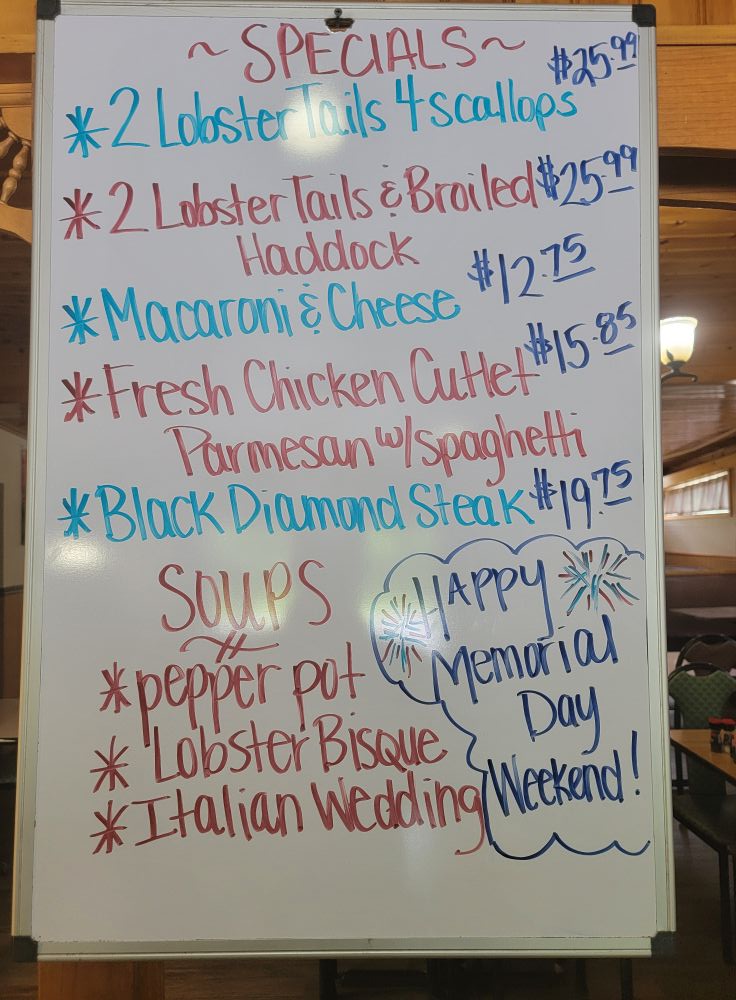 ~SPECIALS~
* 2 Lobster Tails 4 scallops $25.99
* 2 Lobster Tails & Broiled $25.99
Haddock
* Macaroni & Cheese $12.75
* Fresh Chicken Cutlet $15.85
Parmesan w/spaghetti
* Black Diamond Steak $19.75
SOUPS
* pepper pot
* Lobster Bisque
* Italian Wedding
HAPPY
Memorial
Day
Weekend!